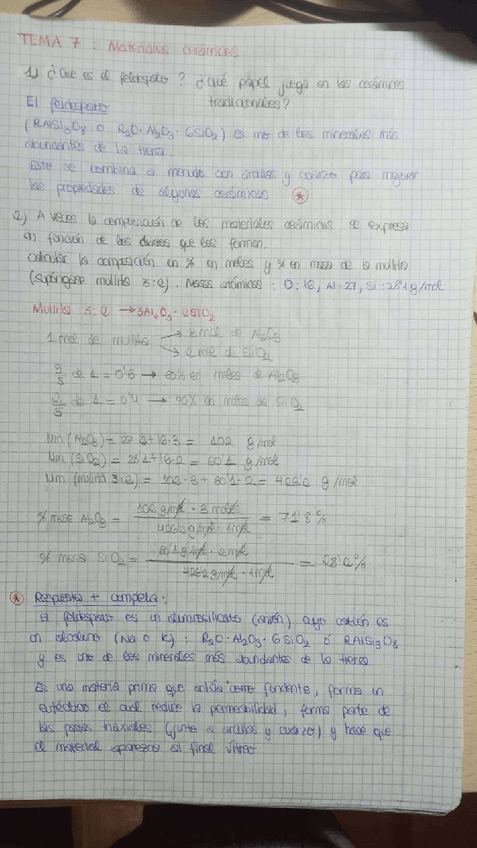 TEMA 7 : Materiales cerámicos
1) ¿Que es el feldespato ? ¿Qué papel juega en las cerámicas
tradicionales?
El feldespato
(RAlSi3O8 ó R2O·Al2O3·6SiO2) es uno de los minerales más
abundantes de la tierra.
Este se combina a menudo con arcillas y cuarzo para mejorar
las propiedades de algunas cerámicas *
2) A veces la composición de los materiales cerámicos se expresa
en función de los óxidos que los forman.
calcular la composición en % en moles y % en masa de la mullita
(supóngase mullita 3:2). Masas atómicas : O:16, Al:27, Si:28'1 g/mol
Mullita 3:2 → 3Al2O3·2SiO2
1 mol de mullita → 3 mol de Al2O3
→ 2 mol de SiO2
3/5 de 1 = 0'6 → 60% en moles de Al2O3
2/5 de 1 = 0'4 → 40% en moles de SiO2
Mm (Al2O3) = 27·2+16·3 = 102 g/mol
Mm (SiO2) = 28'1+16·2 = 60'1 g/mol
Mm (mullita 3:2) = 102·3+60'1·2 = 426'2 g/mol
% masa Al2O3 = 102 g/mol · 3 moles / 426'2 g/mol · 1 mol = 71'8%
% masa SiO2 = 60'1 g/mol · 2 mol / 426'2 g/mol · 1 mol = 28'2%
* Respuesta + completa :
El feldespato es un aluminosilicato (anión) cuyo catión es
un alcalino (Na o K) : R2O·Al2O3·6SiO2 ó RAlSi3O8
y es uno de los minerales más abundantes de la tierra
Es una materia prima que actúa como fundente, forma un
eutéctico el cual reduce la permeabilidad, forma parte de
las pastas triaxiales (junto a arcillas y cuarzo) y hace que
el material aparezca al final vítreo